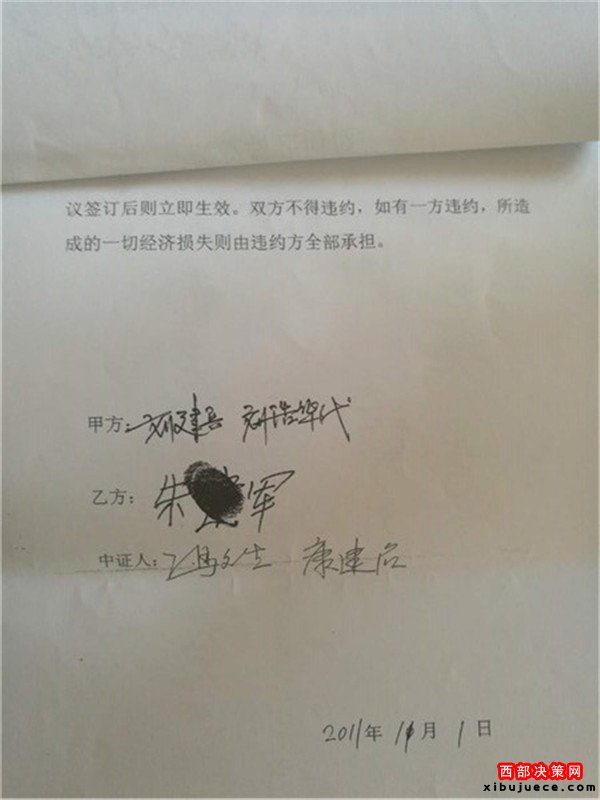 议签订后则立即生效。双方不得违约，如有一方违约，所造
成的一切经济损失则由违约方全部承担。
甲方：建兵 浩华代
乙方：朱 军
中证人：冯文生 康建
2011年 11月 1日
西部决策网
xibujuece.com